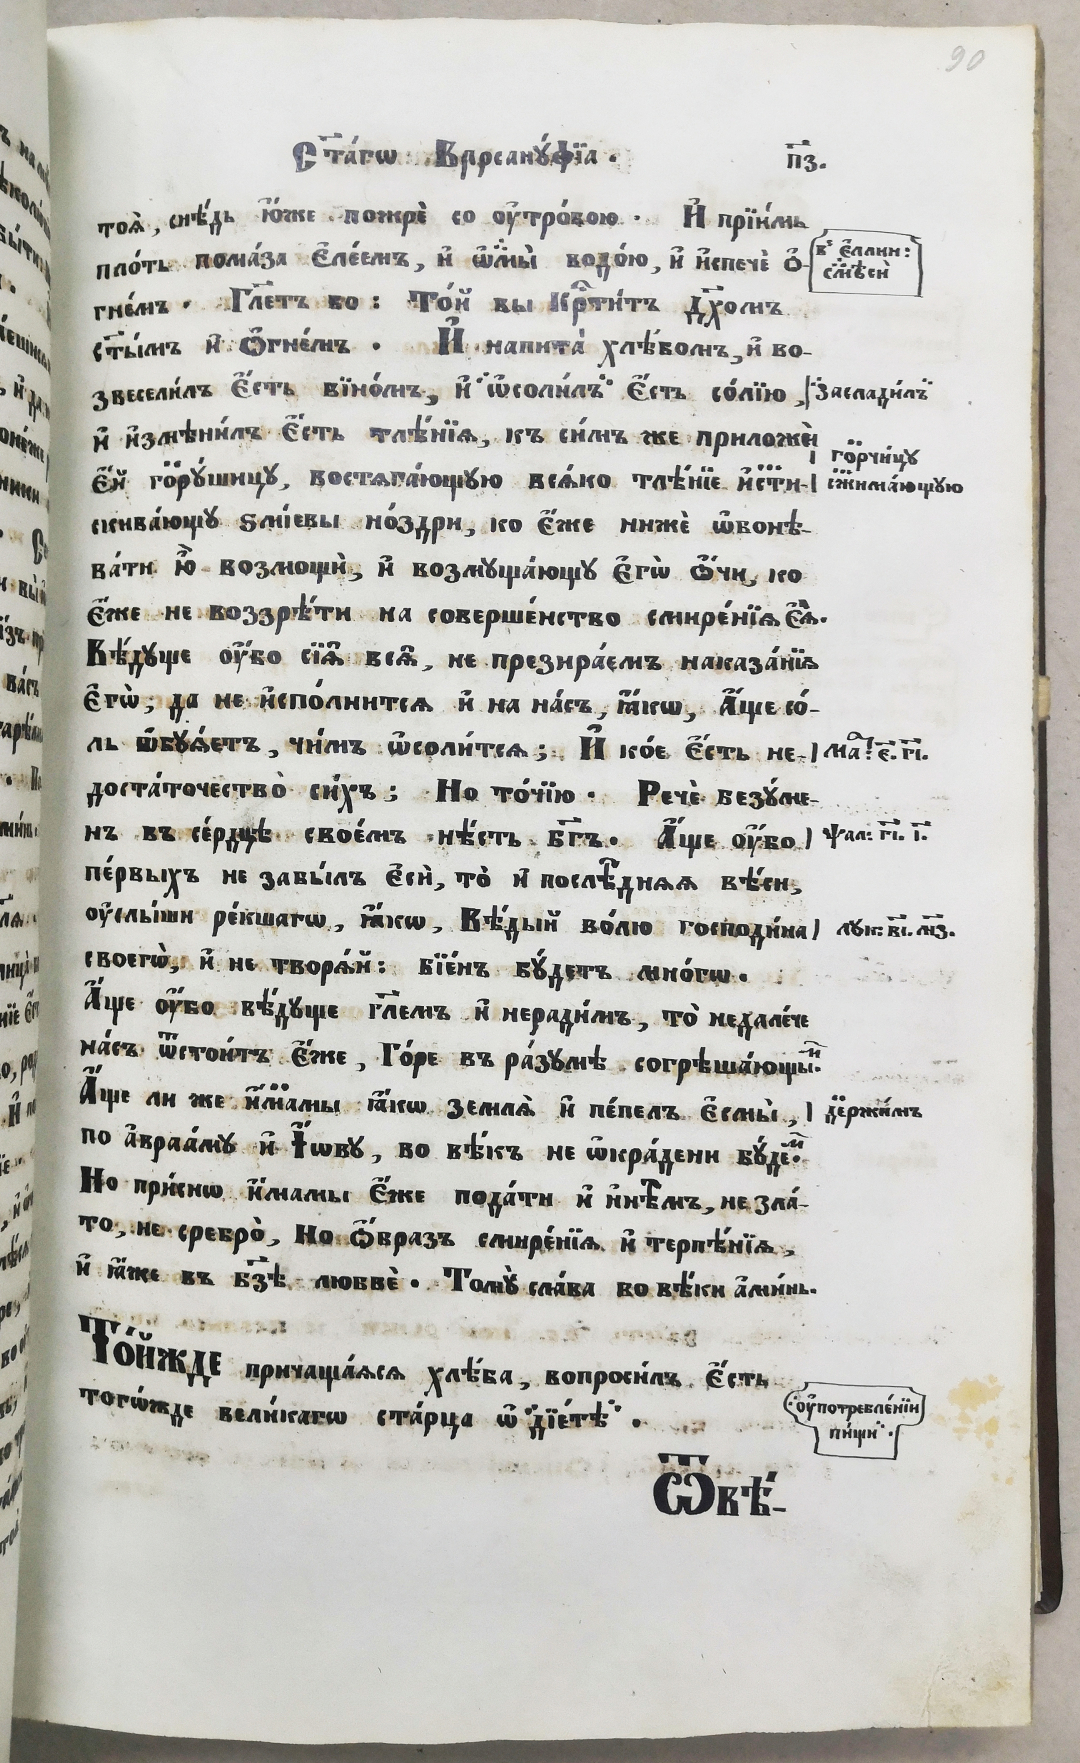 90
Ст҃а́гѡ Варсану́фїа . п҃з.
тоѧ̀, снѣ́дь ю҆́же пожрѐ со оу҆тро́бою . И҆ прїи́мь
пло́ть пома́за є҆ле́емъ, и҆ ѡ҆мы̀ водо́ю, и҆ и҆спечѐ о҆-
в̾ є҆́ллин:
смѣсѝ
гне́мъ . Гл҃етъ бо : То́й вы крⷭ҇ти́тъ дх҃омъ
ст҃ы́мъ и҆ ѻ҆гне́мъ . И҆ напита̀ хлѣ́бомъ, и҆ во-
звесели́лъ є҆́сть вїно́мъ, и҆ ѡ҆соли́лъ є҆́сть со́лїю ,
заслади́лъ
и҆ и҆змѣни́лъ є҆́сть тлѣ́нїѧ, къ си́мъ же приложѝ
є҆́й гору́шицу, востѧга́ющую всѧ́ко тлѣ́нїе и҆сти-
го́рчицу
сжима́ющую
скива́ющу ѕмі́евы но́здри, ко є҆́же нижѐ ѡ҆бонѣ-
ва́ти ю҆̀ возмощѝ, и҆ возмуща́ющу є҆гѡ̀ ѻ҆́чи, ко
є҆́же не воззрѣ́ти на соверше́нство смире́нїѧ є҆ѧ̀.
Вѣ́дуще оу҆́бо сїѧ̑ всѧ̑, не презира́емъ наказа́нїѧ
є҆гѡ̀; да не и҆спо́лнитсѧ и҆ на на́съ, ꙗ҆́кѡ, А҆́ще со́-
ль ѡ҆буѧ́етъ, чи́мъ ѡ҆соли́тсѧ ; И҆ ко́е є҆́сть не-
Маⷴ: є҃. г҃і.
доста́точество̀ си́хъ ; Но то́чїю . Речѐ безу́ме-
нъ въ се́рдцѣ свое́мъ нѣ́сть бг҃ъ. А҆́ще оу҆́бо
Ѱал: г҃і. і҃.
пе́рвыхъ не забы́лъ є҆сѝ, то̀ и҆ послѣ́днѧѧ вѣ́си,
оу҆слы́ши ре́кшагѡ, ꙗ҆́кѡ, Вѣ́дый во́лю господи́на
лук: в҃і. м҃з.
своегѡ̀, и҆ не творѧ́й : бїе́нъ бу́детъ мно́гѡ .
А҆́ще оу҆́бо вѣ́дуще гл҃емъ и҆ неради́мъ, то̀ недале́че
на́съ ѿстои́тъ є҆́же , Го́ре въ ра́зумѣ согрѣша́ющыⷨ.
А҆́ще ли же и҆́мамы ꙗ҆́кѡ землѧ̀ и҆ пе́пелъ є҆смы̀ ,
держи́мъ
по а҆враа́му и҆ І҆́ѡву , во вѣ́къ не ѡ҆кра́дени бу́деⷨ.
Но при́снѡ и҆́мамы є҆́же пода́ти и҆ и҆нѣ́мъ, не зла́-
то, не сребро̀, Но ѻ҆́бразъ смире́нїѧ и҆ терпѣ́нїѧ,
и҆ ꙗ҆́же въ бз҃ѣ любвѐ . Тому̀ сла́ва во вѣ́ки а҆ми́нь.
То́йжде причаща́ѧсѧ хлѣ́ба , вопроси́лъ є҆́сть
тогѡ́жде вели́кагѡ ста́рца ѡ҆ дїе́тѣ .
оу҆потребле́нїи
пи́щи .
Ѿвѣ́-